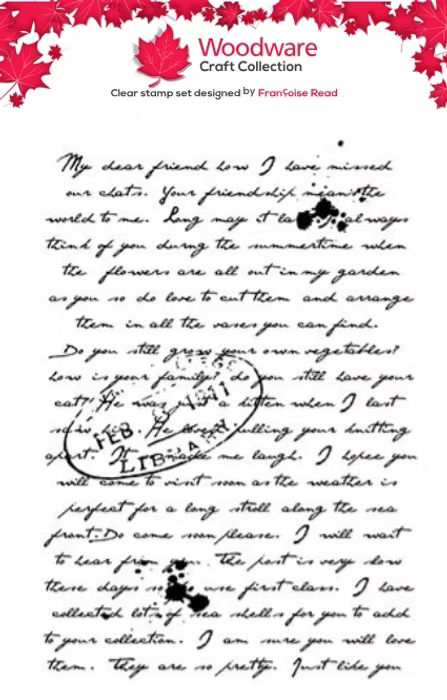 Woodware
Craft Collection
Clear stamp set designed by Françoise Read
My dear friend how I have missed
our chats. Your friendship means the
world to me. Long may it always
think of you durng the summertime when
the flowers are all out in my garden
as you so do love to cut them and arrange
them in all the vases you can find.
Do you still grow your own vegetables?
how is your family? do you still have your
cat? He was a kitten when I last
saw He loved pulling your knitting
apart. It made me laugh. I hopee you
FEB. 1941
LIBRARY
will come to visit soon as the weather is
perfect for a long stroll along the sea
front. Do come soon please. I will wait
to hear from you. The post is very slow
these days so use first class. I have
collected lots of sea shells for you to add
to your collection. I am sure you will love
them. They are so pretty. Just like you